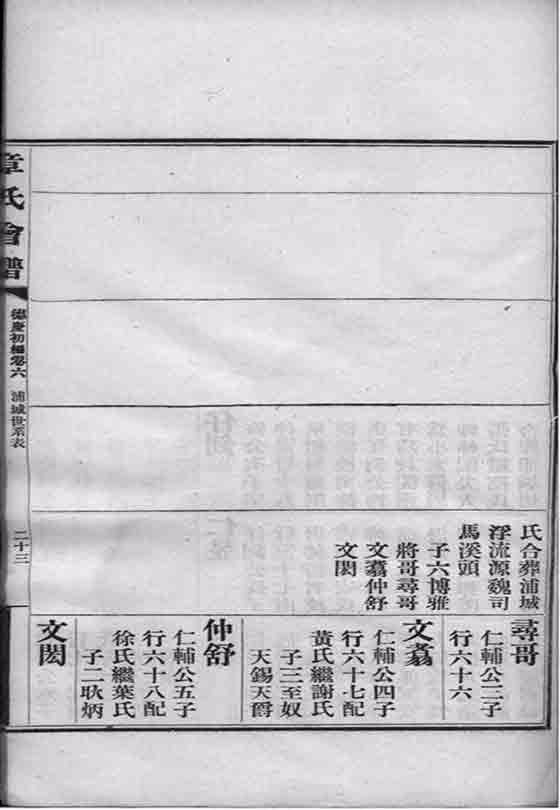 氏合葬浦城
浮流源魏司
馬溪頭
子六博雅
將哥尋哥
文翥仲舒
文閎
尋哥
仁輔公三子
行六十六
文翥
仁輔公四子
行六十七配
黃氏繼謝氏
子三至奴
天錫天爵
仲舒
仁輔公五子
行六十八配
徐氏繼葉氏
子二耿炳
文閎
章氏會譜
德慶初編卷六
浦城世系表
二十三